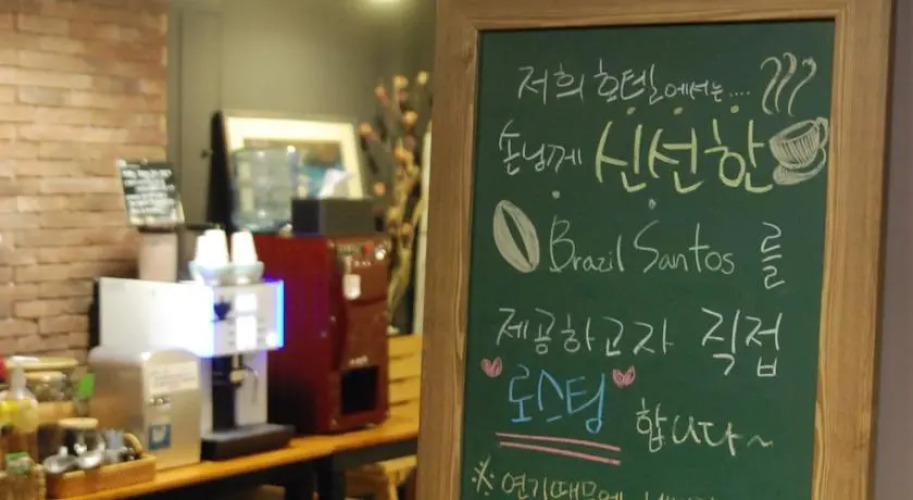 저희 호텔에서는....
손님께 신선한
Brazil Santos 를
제공하고자 직접
로스팅 합니다~
※ 연기때문에